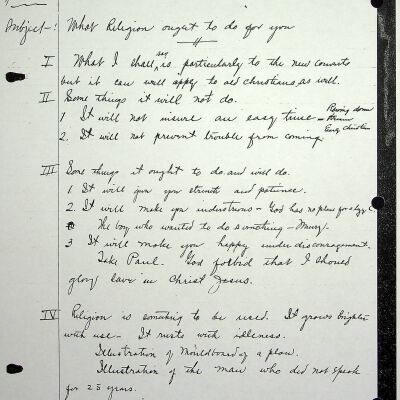 Subject: What Religion ought to do for you
I What I shall say particularly to the new converts
but it can well apply to old christians as well.
II Some things it will not do.
1 It will not insure an easy time -
2. It will not prevent trouble from coming.
III Some things it ought to do and will do.
1. It will give you strength and patience.
2. It will make you industrious - God has no place for a lazy
The boy who wanted to do something -
3 It will make you happy under discouragement.
Take Paul. God forbid that I should
glory save in Christ Jesus.
IV Religion is something to be used. It grows brighter
with use - It rusts with idleness.
Illustration of Mouldboard of a plow.
Illustration of the man who did not speak
for 25 years.